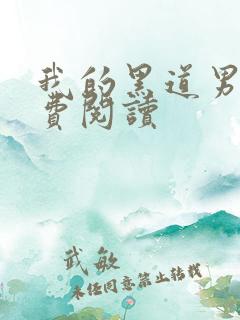 我的黑道男
費閱讀
武敏
未经同意禁止转载